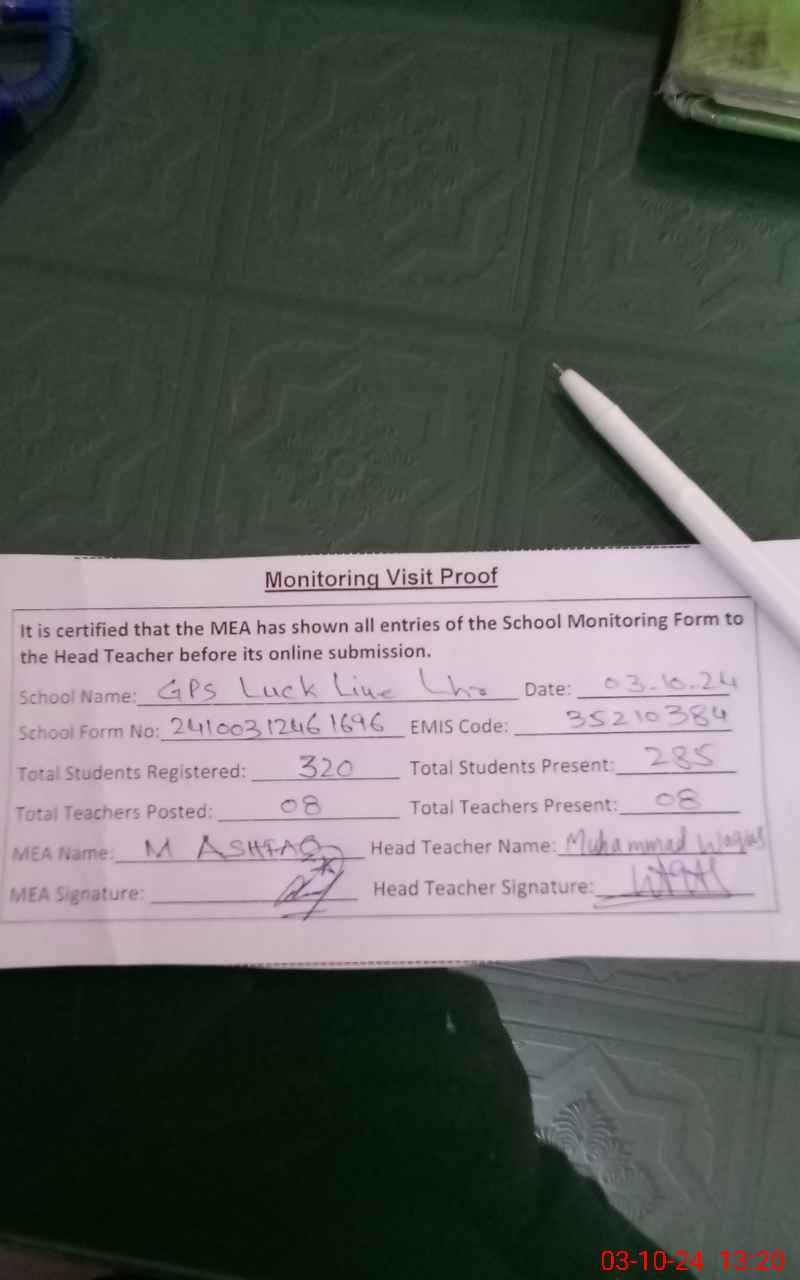 Monitoring Visit Proof
It is certified that the MEA has shown all entries of the School Monitoring Form to
the Head Teacher before its online submission.
School Name: GPS Luck Line Lhr Date: 03-10-24
School Form No: 24100312461696 EMIS Code: 35210384
Total Students Registered: 320 Total Students Present: 285
Total Teachers Posted: 08 Total Teachers Present: 08
MEA Name: M ASHFAQ Head Teacher Name: Muhammad Waqas
MEA Signature: Head Teacher Signature:
03-10-24 13:20